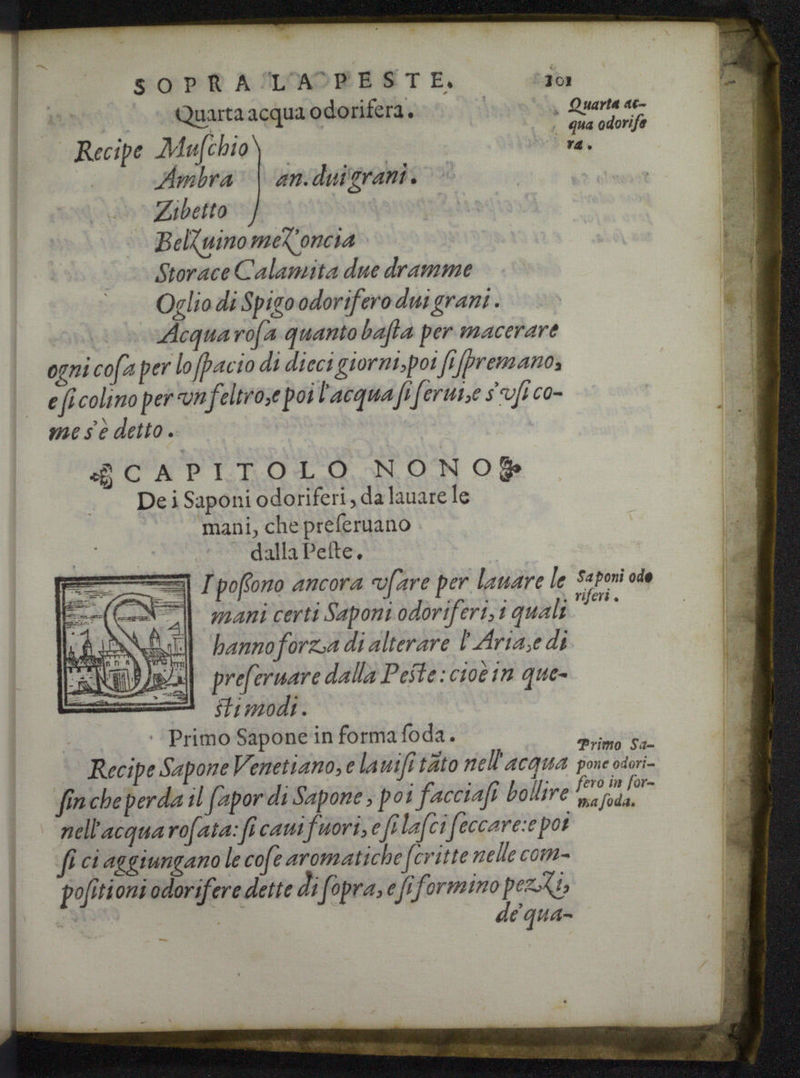 SOPRA LA PESTE. 101
Quarta acqua odorifera.
Quarta ac-
qua odorife
ra.
Recipe Muſchio
Ambra an. dui grani.
Zibetto
Belzuino mez'oncia
Storace Calamita due dramme
Oglio di Spigo odorifero dui grani.
Acqua roſa quanto baſta per macerare
ogni coſa per lo ſpacio di dieci giorni, poi ſi ſpremano,
e ſi colino per vn feltro, e poi l'acqua ſi ſerui, e s'vſi co-
me s'è detto.
CAPITOLO NONO
De i Saponi odoriferi, da lauare le
mani, che preſeruano
dalla Peſte.
SI poſſono ancora vſare per lauare le
mani certi Saponi odoriferi, i quali
hanno forza di alterare l'Aria, e di
preſeruare dalla Peſte: cioè in que-
ſti modi.
Saponi odo
riferi.
Primo Sapone in forma ſoda.
Recipe Sapone Venetiano, e lauiſi tãto nell'acqua
fin che perda il ſapor di Sapone, poi facciaſi bollire
nell'acqua roſata: ſi caui fuori, e ſi laſci ſeccare: e poi
ſi ci aggiungano le coſe aromatiche ſcritte nelle com-
poſitioni odorifere dette di ſopra, e ſi formino pezzi,
Primo Sa-
pone odori-
fero in for-
ma ſoda.
de' qua-